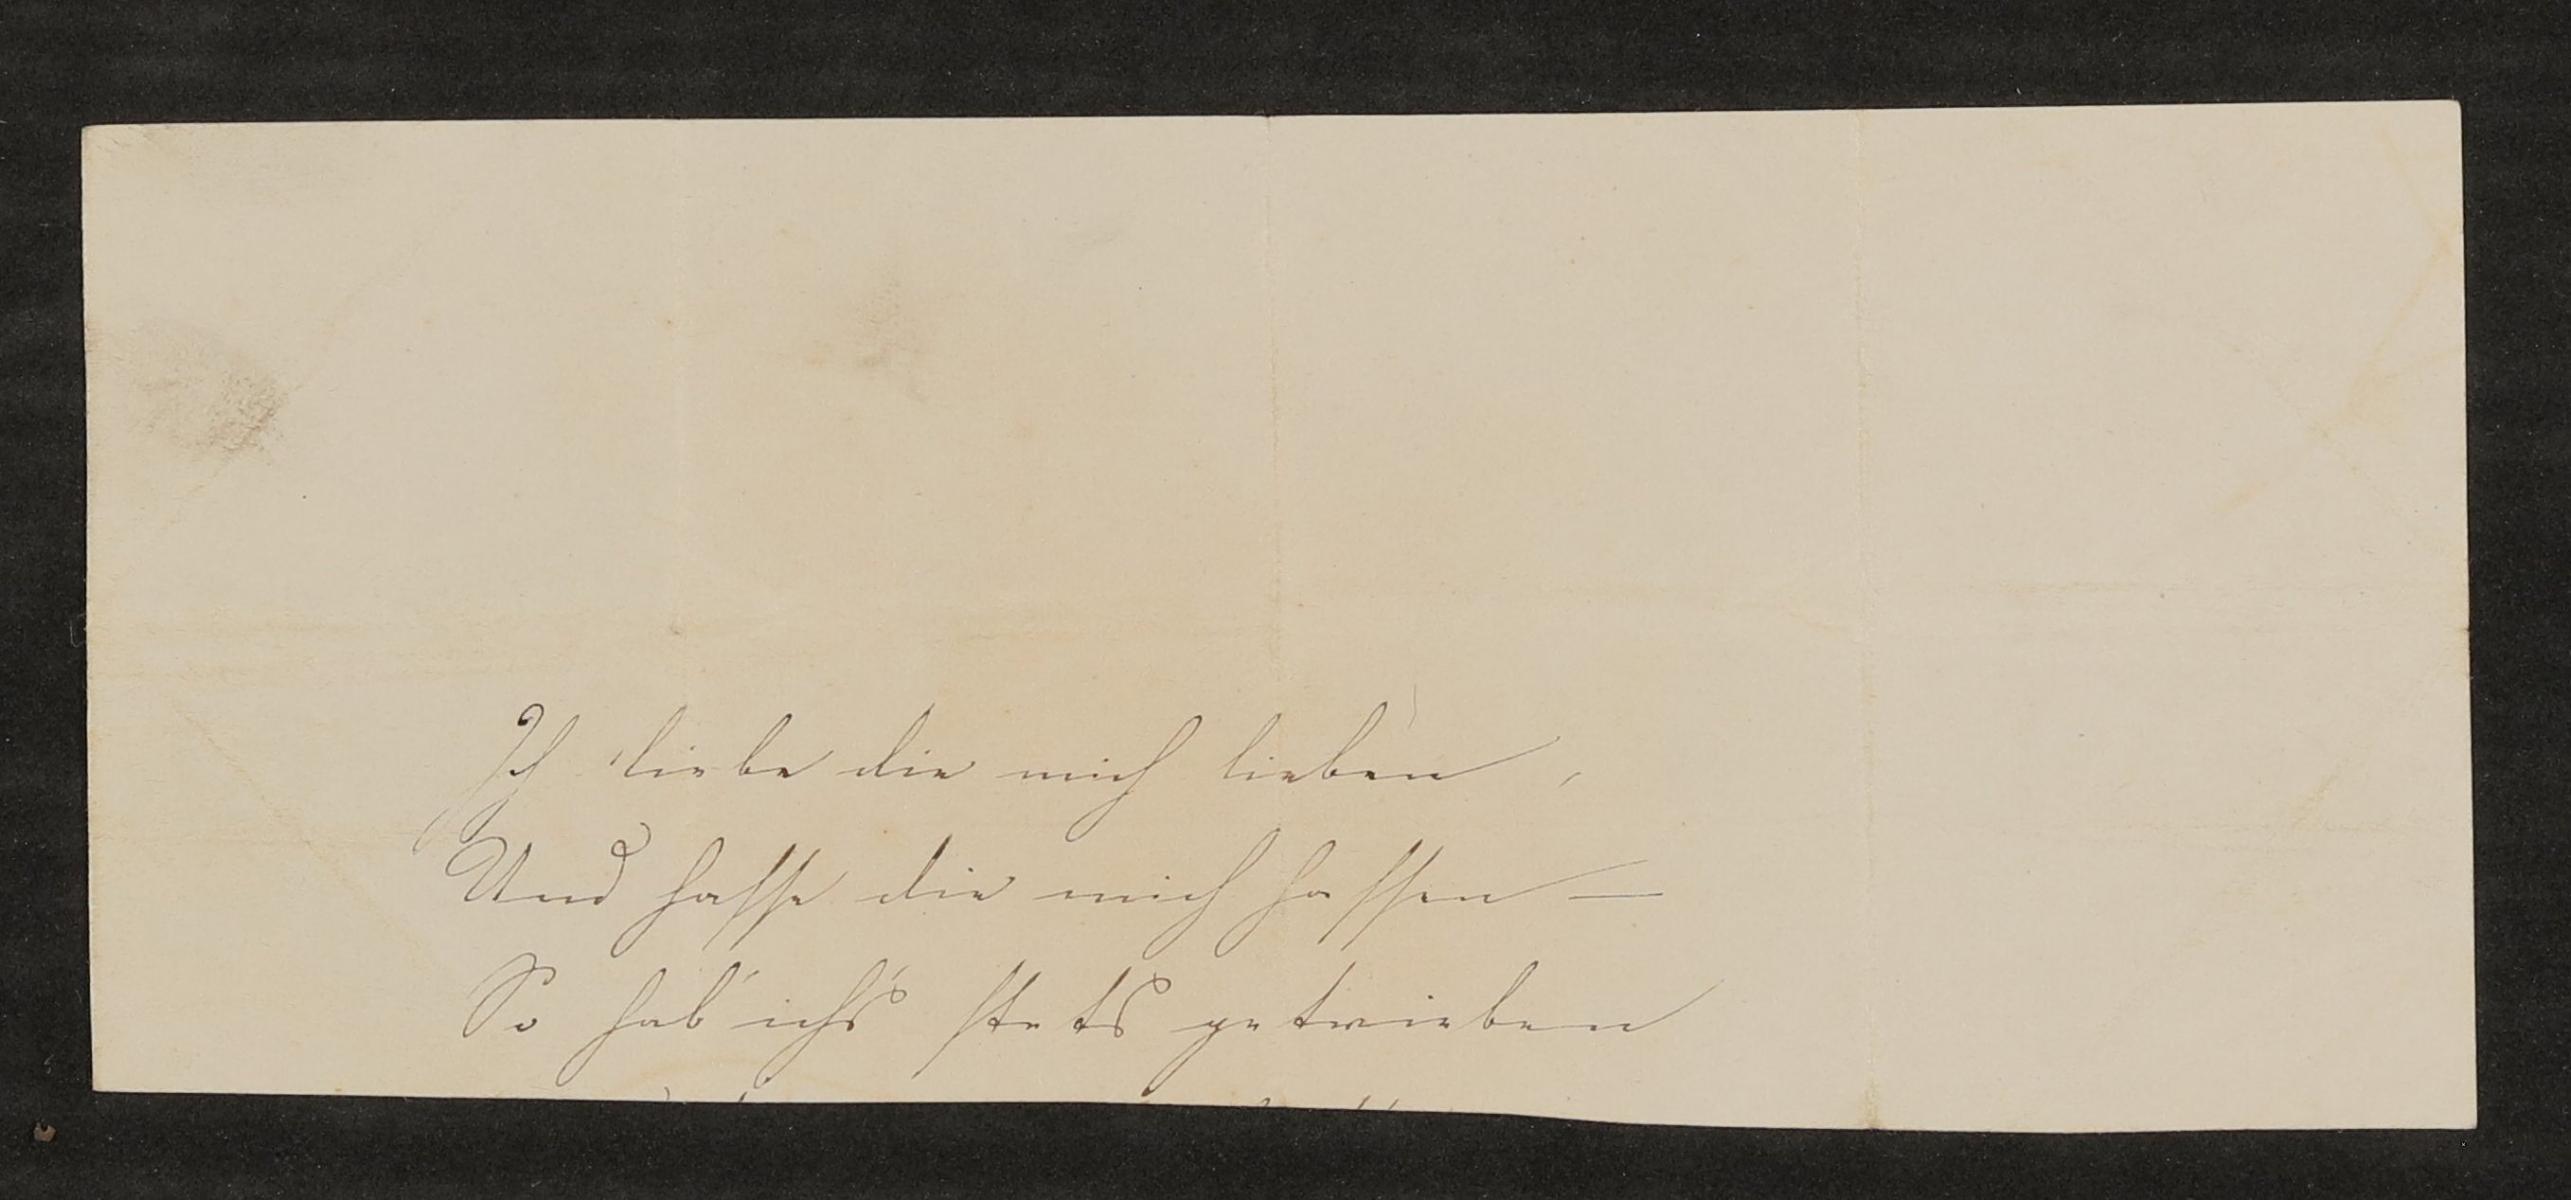 Ich liebe die mich lieben,
Und hasse die mich hassen —
So hab' ich's stets getrieben